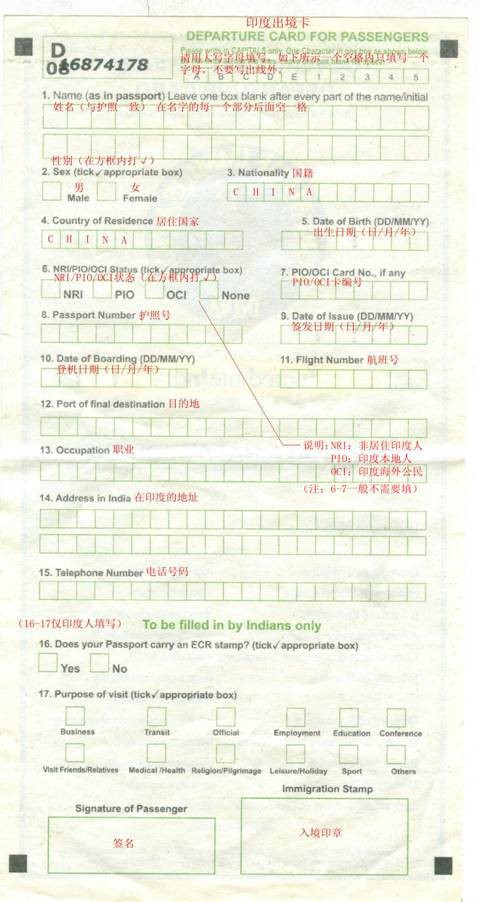 印度出境卡
DEPARTURE CARD FOR PASSENGERS
Please write in CAPITALS only. One Character in one box as shown below
请用大写字母填写，如下所示一个空格内只填写一个
字母，不要写出线外。
D
08
16874178
A B C D E 1 2 3 4 5
1. Name (as in passport) Leave one box blank after every part of the name/initial
姓名（与护照一致） 在名字的每一个部分后面空一格
性别（在方框内打√）
2. Sex (tick✓appropriate box)
3. Nationality 国籍
男 女
Male Female
C H I N A
4. Country of Residence 居住国家
5. Date of Birth (DD/MM/YY)
出生日期（日/月/年）
C H I N A
6. NRI/PIO/OCI Status (tick✓appropriate box)
NRI/PIO/OCI状态（在方框内打√）
7. PIO/OCI Card No., if any
PIO/OCI卡编号
NRI PIO OCI None
8. Passport Number 护照号
9. Date of Issue (DD/MM/YY)
签发日期（日/月/年）
10. Date of Boarding (DD/MM/YY)
登机日期（日/月/年）
11. Flight Number 航班号
12. Port of final destination 目的地
13. Occupation 职业
说明：NRI：非居住印度人
PIO：印度本地人
OCI：印度海外公民
（注：6-7一般不需要填）
14. Address in India 在印度的地址
15. Telephone Number 电话号码
（16-17仅印度人填写）
To be filled in by Indians only
16. Does your Passport carry an ECR stamp? (tick✓appropriate box)
Yes No
17. Purpose of visit (tick✓appropriate box)
Business Transit Official Employment Education Conference
Visit Friends/Relatives Medical /Health Religion/Pilgrimage Leisure/Holiday Sport Others
Immigration Stamp
Signature of Passenger
签名
入境印章